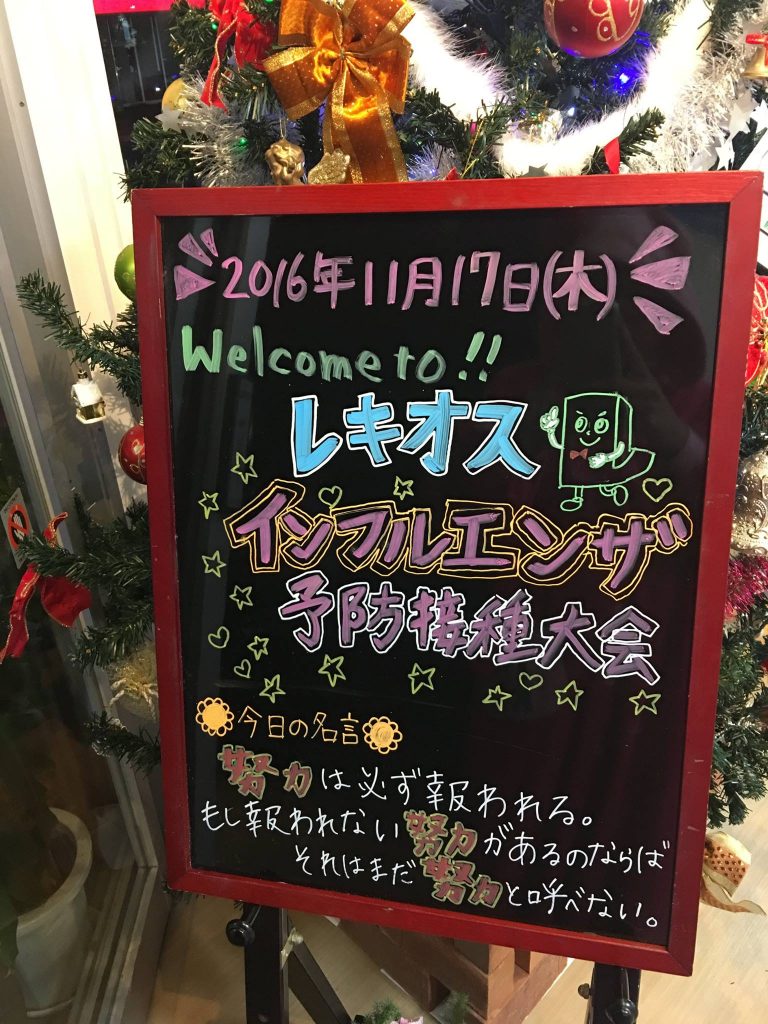 2016年11月17日(木)
Welcome to!!
レキオス
インフルエンザ
予防接種大会
今日の名言
努力は必ず報われる。
もし報われない努力があるのならば
それはまだ努力と呼べない。